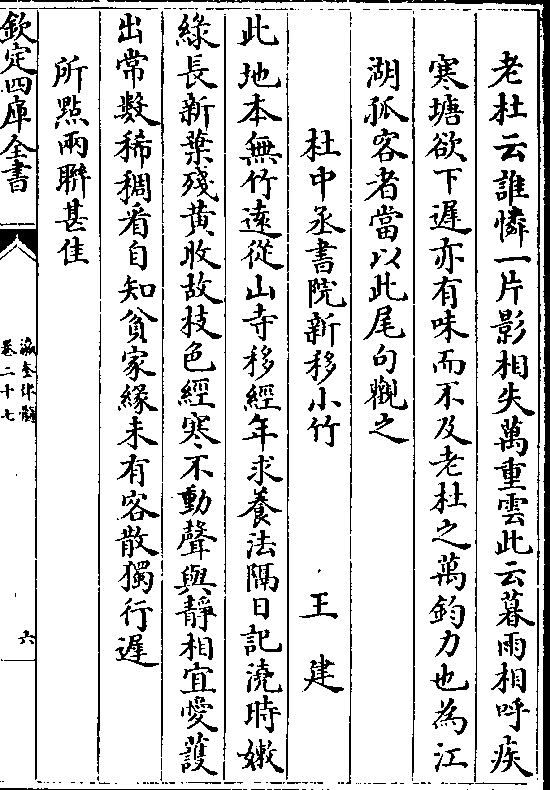 老杜云誰憐一片影相失萬重雲此云暮雨相呼疾
寒塘欲下遲亦有味而不及老杜之萬鈞力也為江
湖孤客者當以此尾句觀之
杜中丞書院新移小竹 王建
此地本無竹遠從山寺移經年求養法隔日記澆時嫩
緑長新葉殘黄收故枝色經寒不動聲與靜相宜愛護
出常數稀稠看自知貧家緣未有客散獨行遲
所㸃兩聯甚佳
欽定四庫全書
瀛奎律髓
卷二十七
六